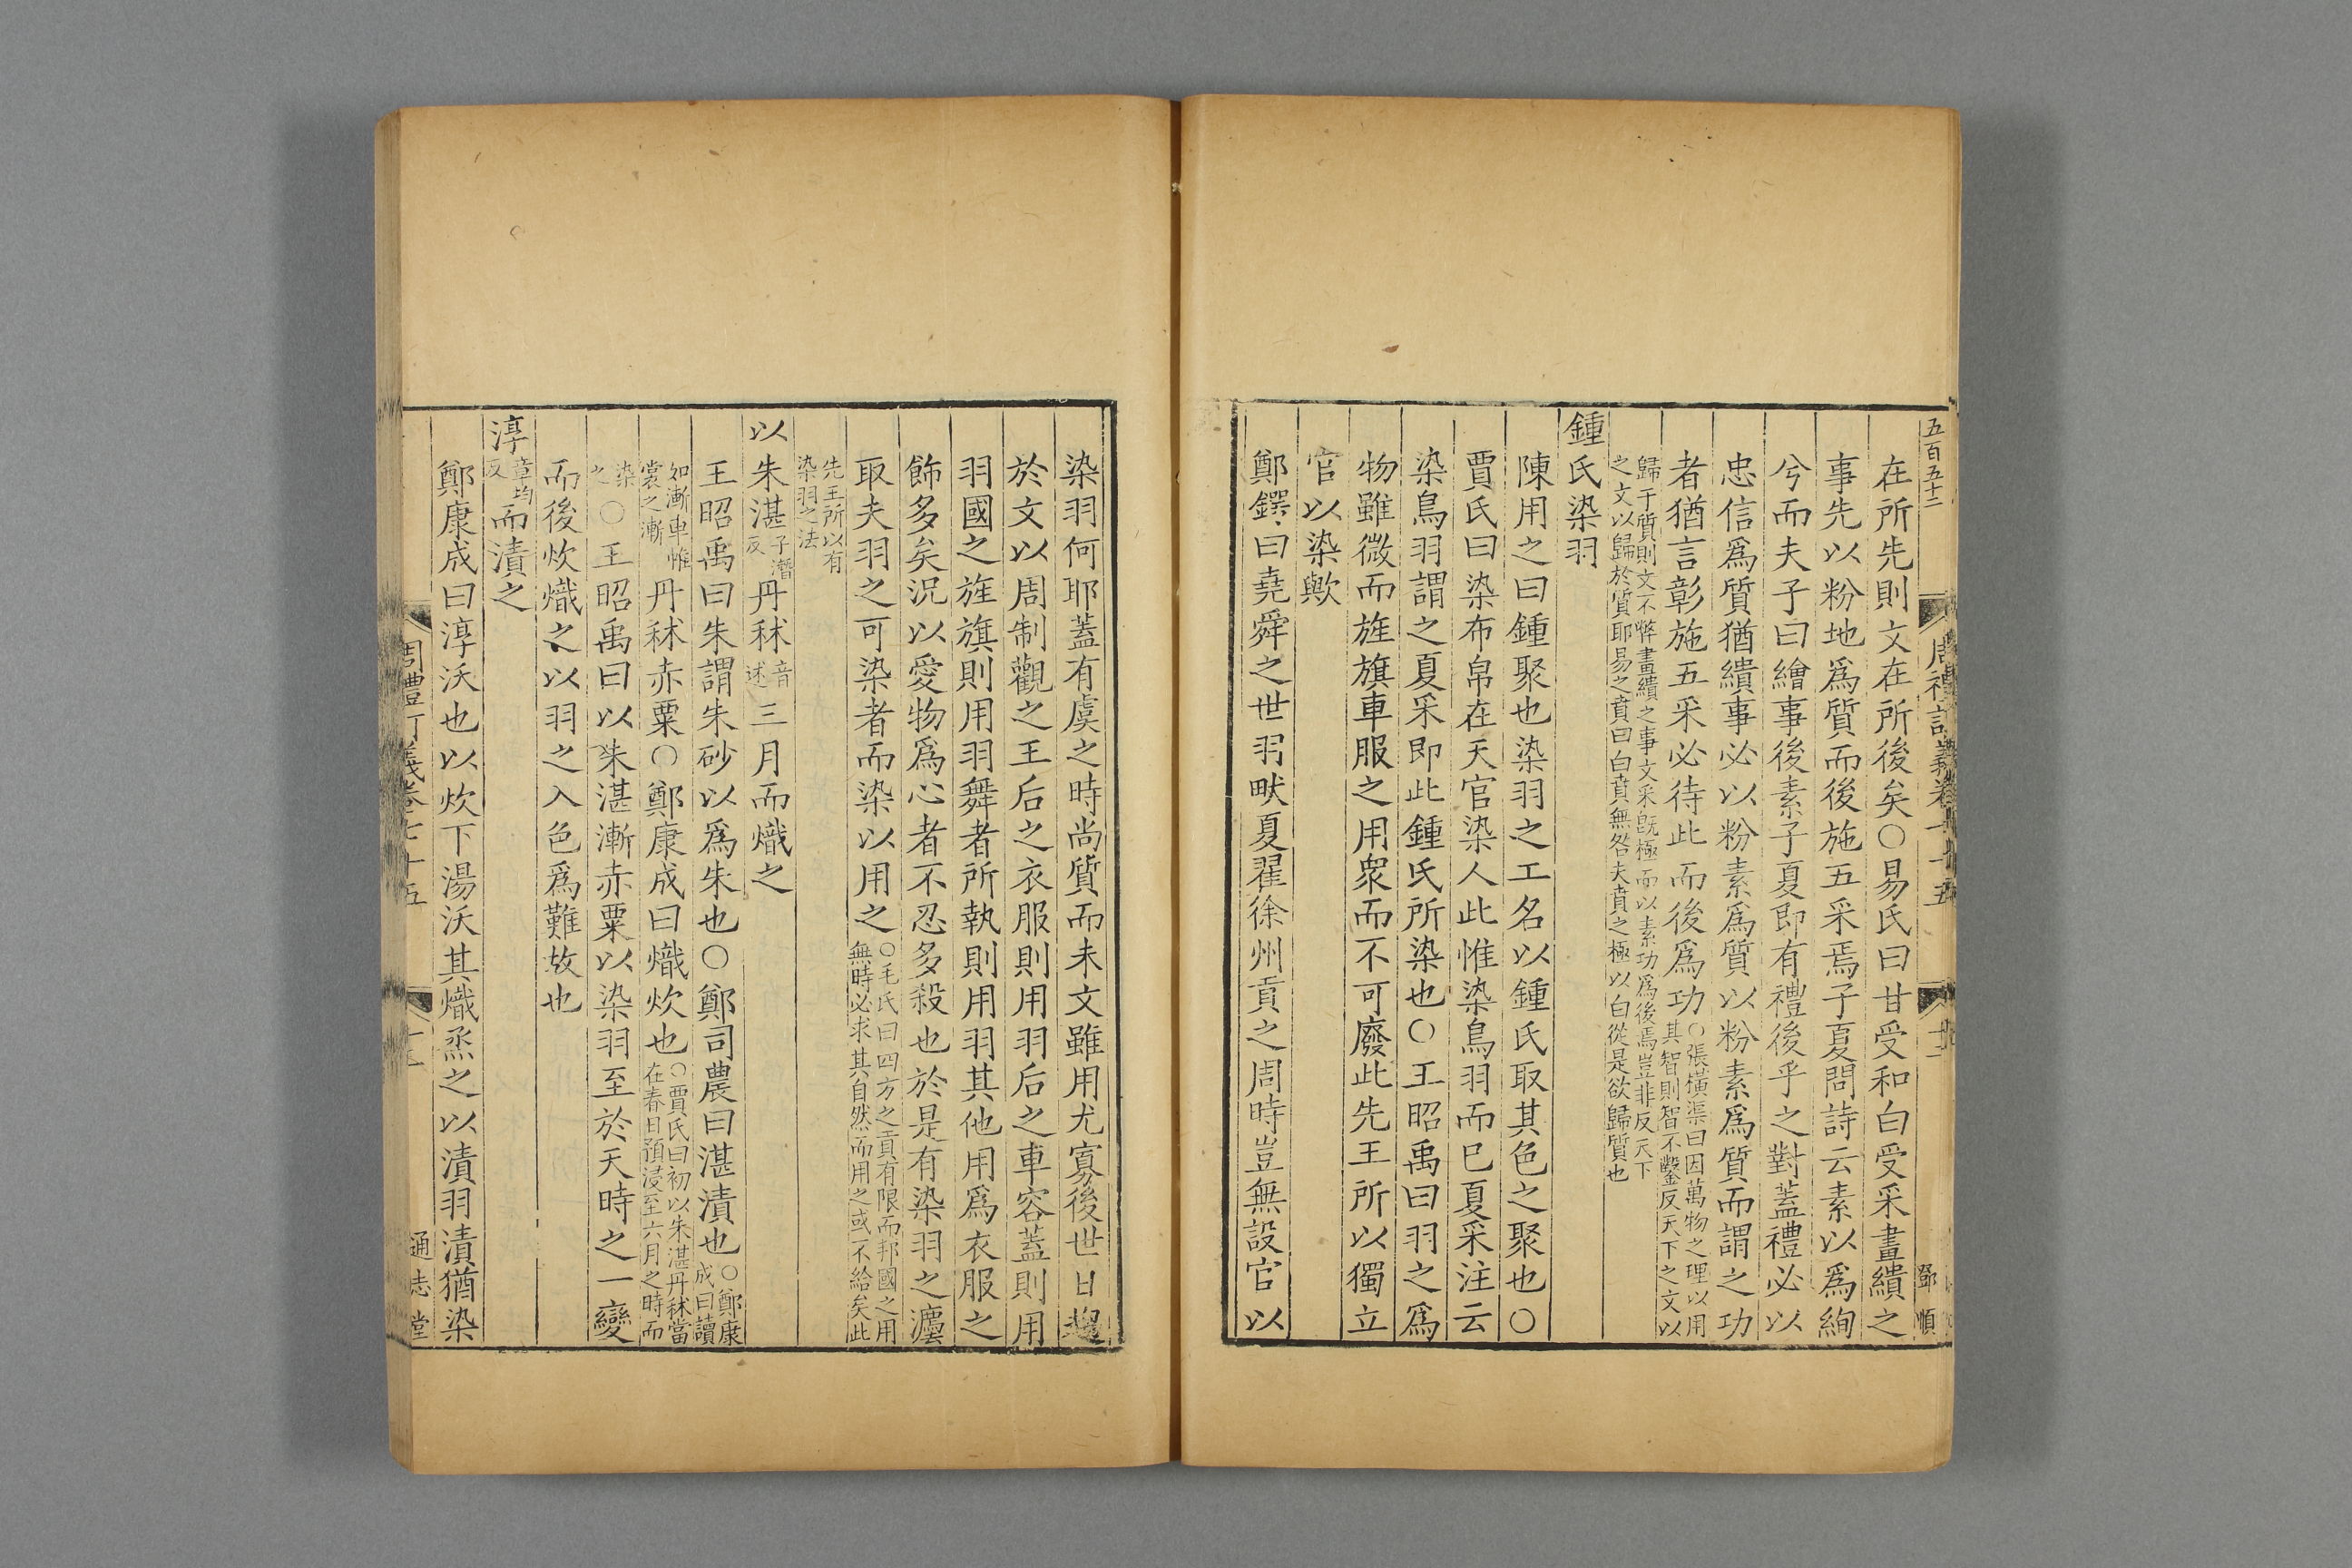 五百五十二
鄧順
在所先則文在所後矣○易氏曰甘受和白受采畫繢之
事先以粉地爲質而後施五采焉子夏問詩云素以爲絢
兮而夫子曰繪事後素子夏即有禮後乎之對蓋禮必以
忠信爲質猶繢事必以粉素爲質以粉素爲質而謂之功
者猶言彰施五采必待此而後爲功○張橫渠曰因萬物之理以用其智則智不鑿反天下之文以
歸于質則文不弊畫繢之事文采旣極而以素功爲後焉豈非反天下之文以歸於質耶易之賁曰白賁無咎夫賁之極以白從是欲歸質也
鍾氏染羽
陳用之曰鍾聚也染羽之工名以鍾氏取其色之聚也○
賈氏曰染布帛在天官染人此惟染鳥羽而已夏采注云
染鳥羽謂之夏采即此鍾氏所染也○王昭禹曰羽之爲
物雖微而旌旗車服之用衆而不可廢此先王所以獨立
官以染歟
鄭鍔曰堯舜之世羽畎夏翟徐州貢之周時豈無設官以
染羽何耶蓋有虞之時尚質而未文雖用尤寡後世日趨
於文以周制觀之王后之衣服則用羽后之車容蓋則用
羽國之旌旗則用羽舞者所執則用羽其他用爲衣服之
飾多矣況以愛物爲心者不忍多殺也於是有染羽之灋
取夫羽之可染者而染以用之○毛氏曰四方之貢有限而邦國之用無時必求其自然而用之或不給矣此
先王所以有染羽之法
以朱湛子潛反丹秫音述三月而熾之
王昭禹曰朱謂朱砂以爲朱也○鄭司農曰湛漬也○鄭康成曰讀
如漸車帷裳之漸丹秫赤粟○鄭康成曰熾炊也○賈氏曰初以朱湛丹秫當在春日預浸至六月之時而
染之○王昭禹曰以朱湛漸赤粟以染羽至於天時之一變
而後炊熾之以羽之入色爲難故也
淳章均反而漬之
鄭康成曰淳沃也以炊下湯沃其熾烝之以漬羽漬猶染
周禮訂義卷七十五
通志堂